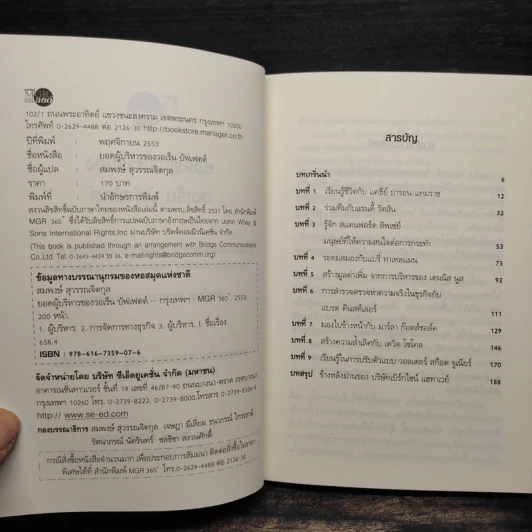 MGR 360°
102/1 ถนนพระอาทิตย์ แขวงชนะสงคราม เขตพระนคร กรุงเทพฯ 10200
โทรศัพท์ 0-2629-4488 ต่อ 2126-30 http://bookstore.manager.co.th
ปีที่พิมพ์ : พฤศจิกายน 2553
ชื่อหนังสือ : ยอดผู้บริหารของวอเร็น บัฟเฟตต์
ชื่อผู้แปล : สมพงษ์ สุวรรณจิตกุล
ราคา : 170 บาท
พิมพ์ที่ : น่ำอักษรการพิมพ์
สงวนลิขสิทธิ์ฉบับภาษาไทยของหนังสือเล่มนี้ ตามพรบ.ลิขสิทธิ์ 2537 โดย สำนักพิมพ์
MGR 360° ซึ่งได้รับลิขสิทธิ์การแปลฉบับภาษาอังกฤษเป็นไทยจาก John Wiley &
Sons International Rights,Inc ผ่านบริษัท บริดจ์คอมมิวนิเคชั่น จำกัด
(This book is published through an arrangement with Bridge Communications
Co.,Ltd. Tel: 0-2645-4424 to 26, e-mail:rights@bridgecomm.org)
ข้อมูลทางบรรณานุกรมของหอสมุดแห่งชาติ
สมพงษ์ สุวรรณจิตกุล
ยอดผู้บริหารของวอเร็น บัฟเฟตต์.-- กรุงเทพฯ : MGR 360°, 2553
200 หน้า.
1. ผู้บริหาร. 2. การจัดการทางธุรกิจ 3. ผู้บริหาร. I. ชื่อเรื่อง.
658.4
ISBN : 978-616-7359-07-6
จัดจำหน่ายโดย บริษัท ซีเอ็ดยูเคชั่น จำกัด (มหาชน)
อาคารเนชั่นทาวเวอร์ ชั้นที่ 19 เลขที่ 46/87-90 ถนนบางนา-ตราด เขตบางนา
กรุงเทพฯ 10260 โทร. 0-2739-8222, 0-2739-8000 โทรสาร 0-2739-8356-9
http:// www.se-ed.com
กองบรรณาธิการ สมพงษ์ สุวรรณจิตกุล เจษฎา มีเลี่ยม ธนาภรณ์ ไกรฤาษี
รัตนาภรณ์ นัครินทร์ ชลธิชา สงวนศักดิ์
กรณีสั่งซื้อหนังสือจำนวนมาก เพื่อประกอบการสัมมนา ติดต่อสั่งซื้อในราคา
พิเศษได้ที่ สำนักพิมพ์ MGR 360° โทร.0-2629-4488 ต่อ 2126-30
สารบัญ
บทเกริ่นนำ 6
บทที่ 1 เรียนรู้ชีวิตกับ แคธีย์ บารอน-แทมราช 12
บทที่ 2 ร่วมทีมกับแรนดี้ วัตสัน 32
บทที่ 3 รู้จัก สแตนฟอร์ด ลิพเซย์
มนุษย์ที่ให้ความสนใจต่อการกระทำ 39
บทที่ 4 ระดมสมองกับแบรี่ ทาเทลแมน 73
บทที่ 5 สร้างมูลค่าเพิ่ม จากการบริหารของ เดนนิส นูส 92
บทที่ 6 การสำรวจตรวจหาความจริงในธุรกิจกับ
แบรด คินสท์เลอร์ 111
บทที่ 7 มองไปข้างหน้ากับ มาร์ลา ก็อตส์ชอล์ค 129
บทที่ 8 สร้างความล้ำเลิศกับ เดวิด โซโคล 146
บทที่ 9 เรียนรู้ในการปรับตัวแบบ วอลเตอร์ สก๊อต จูเนียร์ 170
บทสรุป ข้างหลังม่านของ บริษัทเบิร์กไชน์ แฮทาเวย์ 188